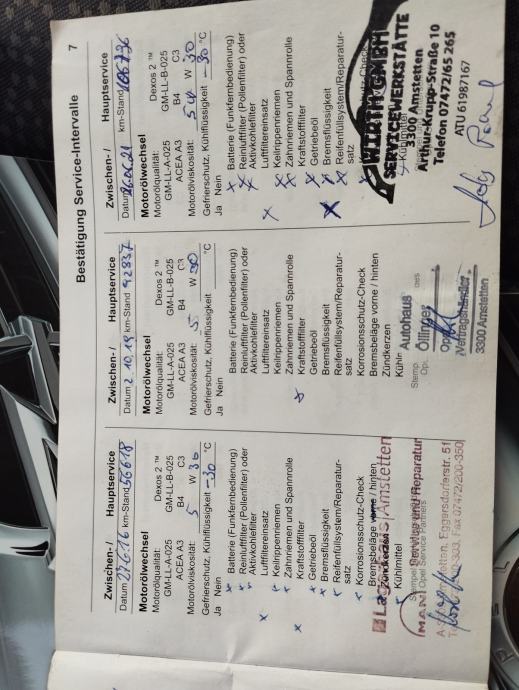 7
Bestätigung Service-Intervalle
Zwischen- / Hauptservice
Datum 27.6.16 km-Stand 56618
Motorölwechsel
Motorölqualität: Dexos 2 ™
GM-LL-A-025 GM-LL-B-025
ACEA A3 B4 C3
Motorölviskosität: 5 W 30
Gefrierschutz, Kühlflüssigkeit -30 °C
Ja Nein
x Batterie (Funkfernbedienung)
x Reinluftfilter (Pollenfilter) oder
Aktivkohlefilter
x Luftfiltereinsatz
x Keilrippenriemen
x Zahnriemen und Spannrolle
x Kraftstofffilter
x Getriebeöl
x Bremsflüssigkeit
x Reifenfüllsystem/Reparatur-
satz
x Korrosionsschutz-Check
x Bremsbeläge vorne / hinten
Zündkerzen
x Kühlmittel
Amstetten
MAN Service und Reparatur
Opel Service Partners
Eggersdorferstr. 51
Fax 07472/200-350
Zwischen- / Hauptservice
Datum 2.10.19 km-Stand 92837
Motorölwechsel
Motorölqualität: Dexos 2 ™
GM-LL-A-025 GM-LL-B-025
ACEA A3 B4 C3
Motorölviskosität: 5 W 30
Gefrierschutz, Kühlflüssigkeit °C
Ja Nein
Batterie (Funkfernbedienung)
Reinluftfilter (Pollenfilter) oder
Aktivkohlefilter
Luftfiltereinsatz
Keilrippenriemen
Zahnriemen und Spannrolle
x Kraftstofffilter
Getriebeöl
Bremsflüssigkeit
Reifenfüllsystem/Reparatur-
satz
Korrosionsschutz-Check
Bremsbeläge vorne / hinten
Zündkerzen
Autohaus
Öllinger
Vertragshändler
3300 Amstetten
Zwischen- / Hauptservice
km-Stand
Motorölwechsel
Motorölqualität: Dexos 2 ™
GM-LL-A-025 GM-LL-B-025
ACEA A3 B4 C3
Motorölviskosität: 5 W 30
Gefrierschutz, Kühlflüssigkeit -30 °C
Ja Nein
x Batterie (Funkfernbedienung)
x Reinluftfilter (Pollenfilter) oder
x Aktivkohlefilter
x Luftfiltereinsatz
x Keilrippenriemen
x Zahnriemen und Spannrolle
x Kraftstofffilter
x Getriebeöl
x Bremsflüssigkeit
x Reifenfüllsystem/Reparatur-
satz
WIRTH GMBH
SERVICEWERKSTÄTTE
3300 Amstetten
Arthur-Krupp-Straße 10
Telefon 07472/65 265
ATU 61987167